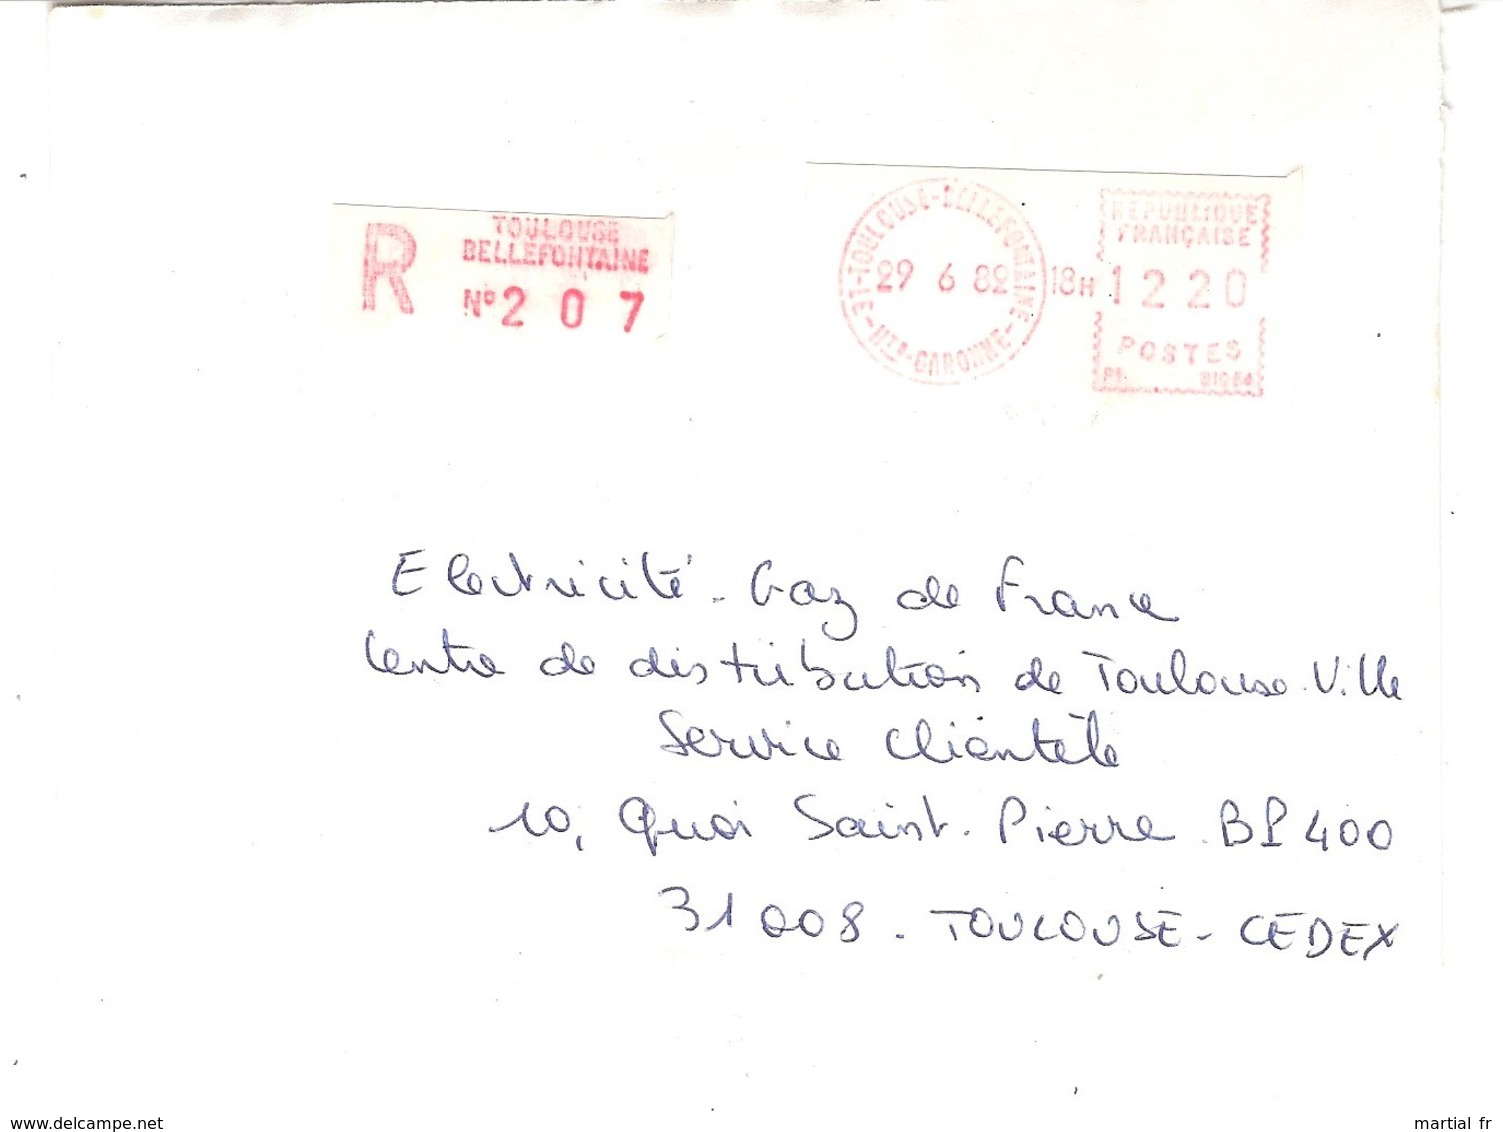 R
TOULOUSE
BELLEFONTAINE
N° 2 0 7
31-TOULOUSE-BELLEFONTAINE
29 6 82 18H
Hte-GARONNE
REPUBLIQUE
FRANÇAISE
12 20
POSTES
Electricité - Gaz de France
Centre de distribution de Toulouse-Ville
Service Clientèle
10, Quai Saint-Pierre BP 400
31008 - TOULOUSE - CEDEX
www.delcampe.net
martial fr